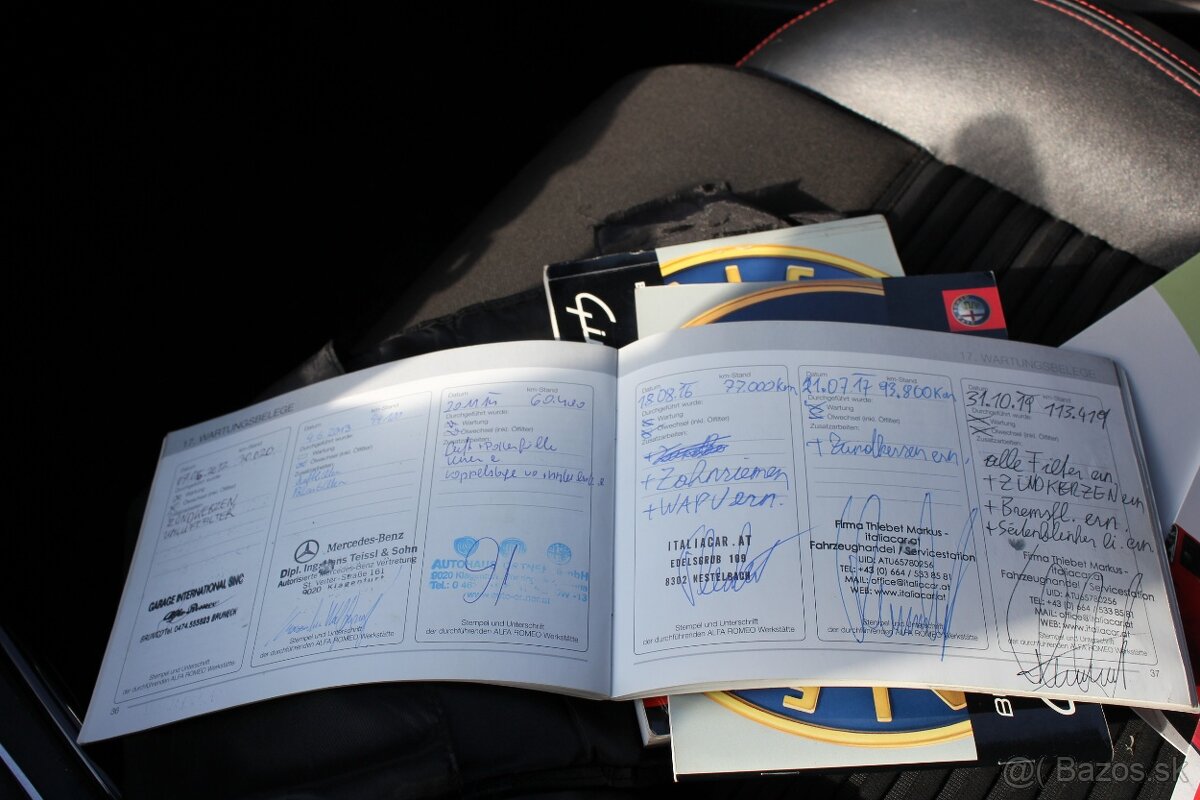 17. WARTUNGSBELEGE
Datum
km-Stand
Durchgeführt wurde:
Wartung
Ölwechsel (inkl. Ölfilter)
Zusatzarbeiten:
ZÜNDKERZEN
GARAGE INTERNATIONAL SNC
Stempel und Unterschrift
der durchführenden ALFA ROMEO Werkstätte
36
Datum
km-Stand
4.6.2013
Durchgeführt wurde:
Wartung
Ölwechsel (inkl. Ölfilter)
Zusatzarbeiten:
Luftfilter
Pollenfilter
Mercedes-Benz
Dipl. Ing. Hans Teissl & Sohn
Autorisierte Mercedes-Benz Vertretung
St. Veiter-Straße 161
9020 Klagenfurt
Stempel und Unterschrift
der durchführenden ALFA ROMEO Werkstätte
Datum
km-Stand
60.400
Durchgeführt wurde:
Wartung
Ölwechsel (inkl. Ölfilter)
Zusatzarbeiten:
AUTOHAUS
9020 Klagenfurt
Stempel und Unterschrift
der durchführenden ALFA ROMEO Werkstätte
17. WARTUNGSBELEGE
Datum
km-Stand
18.08.16 77.000 Km
Durchgeführt wurde:
Wartung
Ölwechsel (inkl. Ölfilter)
Zusatzarbeiten:
+ Zahnriemen
+ WAPU ern.
ITALIACAR.AT
EDELSGRUB 109
8302 NESTELBACH
Stempel und Unterschrift
der durchführenden ALFA ROMEO Werkstätte
Datum
km-Stand
21.07.17 93,800 Km
Durchgeführt wurde:
Wartung
Ölwechsel (inkl. Ölfilter)
Zusatzarbeiten:
+ Zündkerzen ern.
Firma Thiebet Markus -
italiacar.at
Fahrzeughandel / Servicestation
UID: ATU65780256
TEL: +43 (0) 664 / 533 85 81
MAIL: office@italiacar.at
WEB: www.italiacar.at
Stempel und Unterschrift
der durchführenden ALFA ROMEO Werkstätte
Datum
km-Stand
31.10.19 113.419
Durchgeführt wurde:
Wartung
Ölwechsel (inkl. Ölfilter)
Zusatzarbeiten:
alle Filter ern
+ ZÜNDKERZEN ern
+ Bremsfl. ern.
+ Seitenblinker li. ern
Firma Thiebet Markus -
italiacar.at
Fahrzeughandel / Servicestation
UID: ATU65780256
TEL: +43 (0) 664 / 533 85 81
MAIL: office@italiacar.at
WEB: www.italiacar.at
Stempel und Unterschrift
der durchführenden ALFA ROMEO Werkstätte
37
Bazos.sk